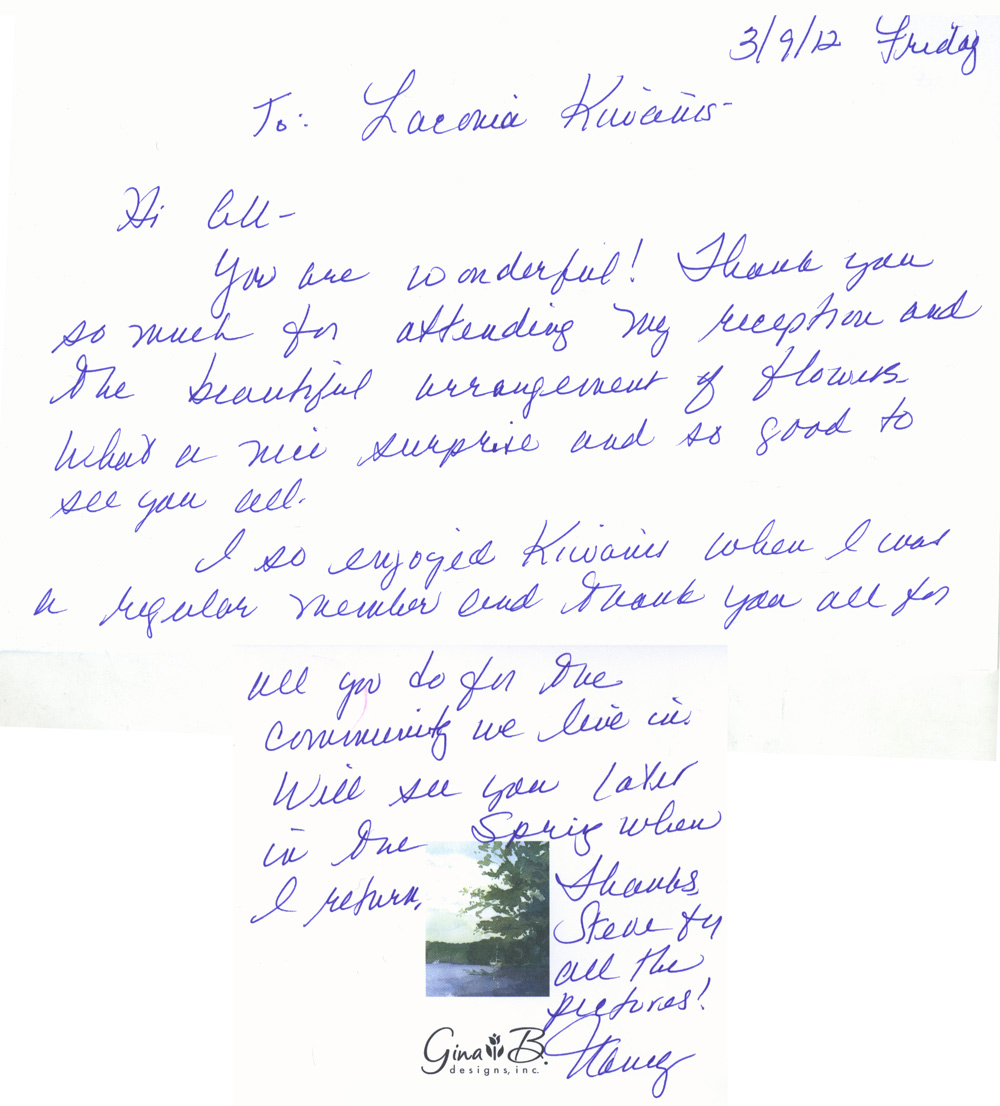 3/9/12 Friday
To: Laconia Kiwanis-
Hi All-
You are wonderful! Thank you
so much for attending my reception and
the beautiful arrangement of flowers.
What a nice surprise and so good to
see you all.
I so enjoyed Kiwanis when I was
a regular member and thank you all for
all you do for the
community we live in.
Will see you later
in the Spring when
I return.
Thanks,
Steve for
all the
pictures!
Nancy
Gina B.
designs, inc.